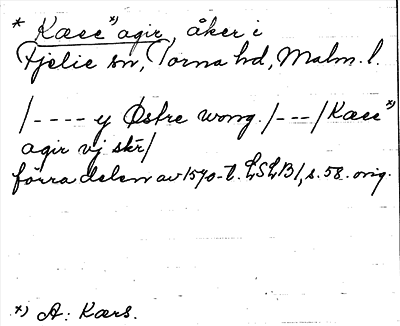 * Kæcc*) agir, åker i
Fjelie sn, Torna hd, Malm. l.
/---- y Østre wong. /---/ Kæcc*)
agir vj skr/
förra delen av 1570-t. LSLB1, s. 58. orig.
*) A: Kærs.